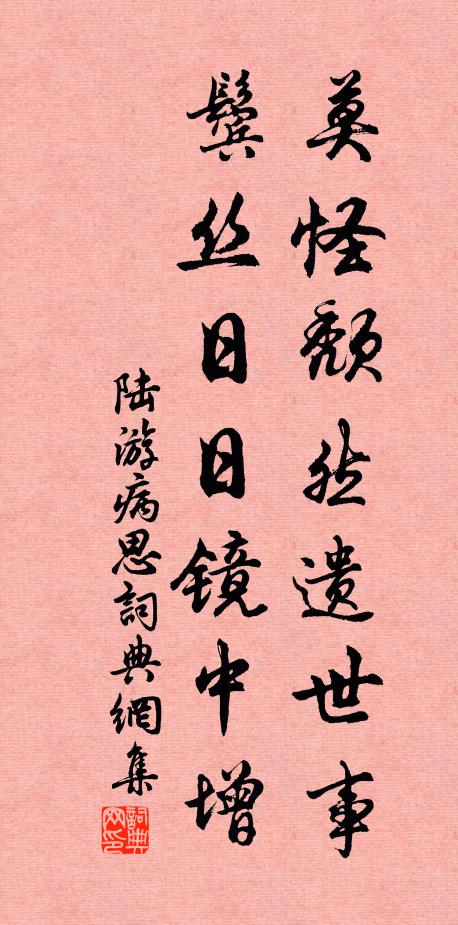 莫怪颓然遗世事
鬓丝日日镜中增
陆游病思詞典網集
詞典网印